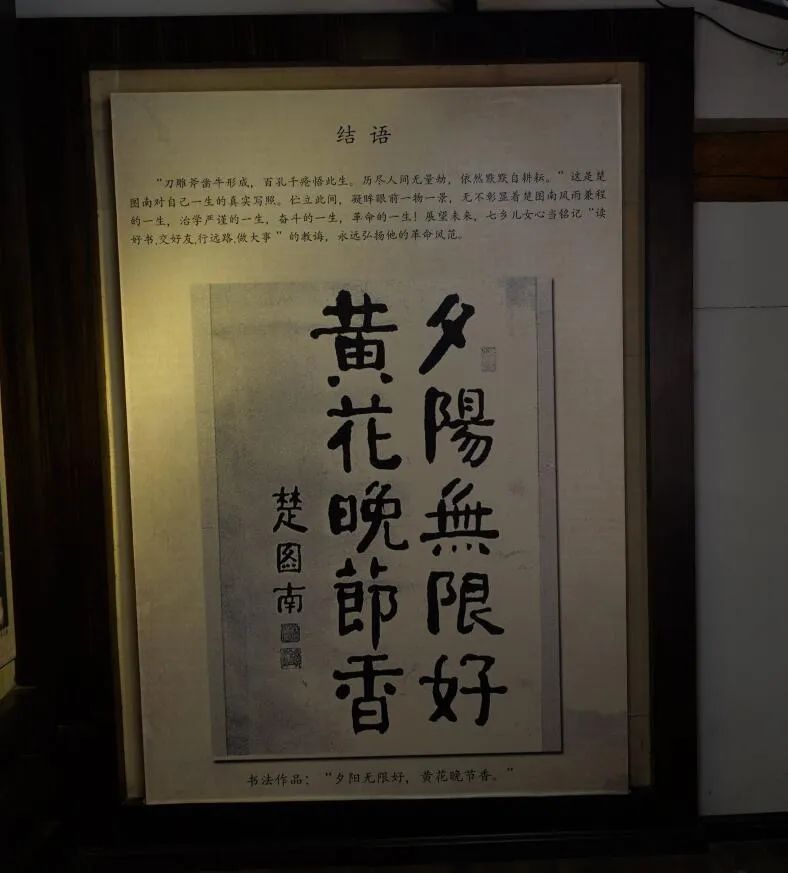 结 语
“刀雕斧凿牛形成，百孔千疮悟此生。历尽人间无量劫，依然默默自耕耘。”这是楚
图南对自己一生的真实写照。伫立此间，凝眸眼前一物一景，无不彰显着楚图南风雨兼程
的一生，治学严谨的一生，奋斗的一生，革命的一生！展望未来，七乡儿女心当铭记“读
好书,交好友,行远路,做大事”的教诲，永远弘扬他的革命风范。
夕陽無限好
黄花晚節香
楚图南
书法作品：“夕阳无限好，黄花晚节香。”